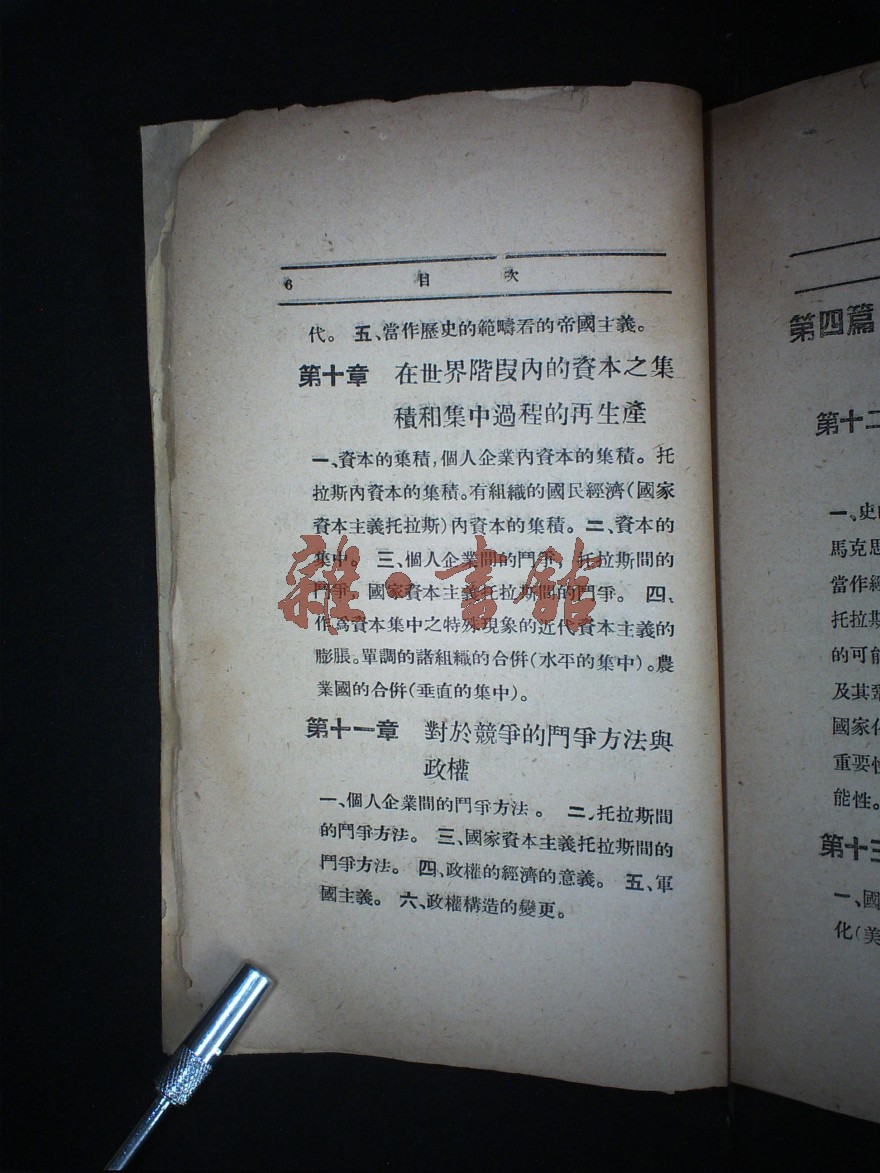 6 目 次
代。 五、當作歷史的範疇看的帝國主義。
第十章 在世界階段內的資本之集
積和集中過程的再生產
一、資本的集積，個人企業內資本的集積。托
拉斯內資本的集積。有組織的國民經濟（國家
資本主義托拉斯）內資本的集積。 二、資本的
集中。 三、個人企業間的鬥爭，托拉斯間的
鬥爭，國家資本主義托拉斯間的鬥爭。 四、
作爲資本集中之特殊現象的近代資本主義的
膨脹。單調的諸組織的合併（水平的集中）。農
業國的合併（垂直的集中）。
第十一章 對於競爭的鬥爭方法與
政權
一、個人企業間的鬥爭方法。 二、托拉斯間
的鬥爭方法。 三、國家資本主義托拉斯間的
鬥爭方法。 四、政權的經濟的意義。 五、軍
國主義。 六、政權構造的變更。
雜·書館
第四篇
第十二
一、史
馬克思
當作經
托拉斯
的可能
及其
國家化
重要性
能性。
第十三
一、國
化（美